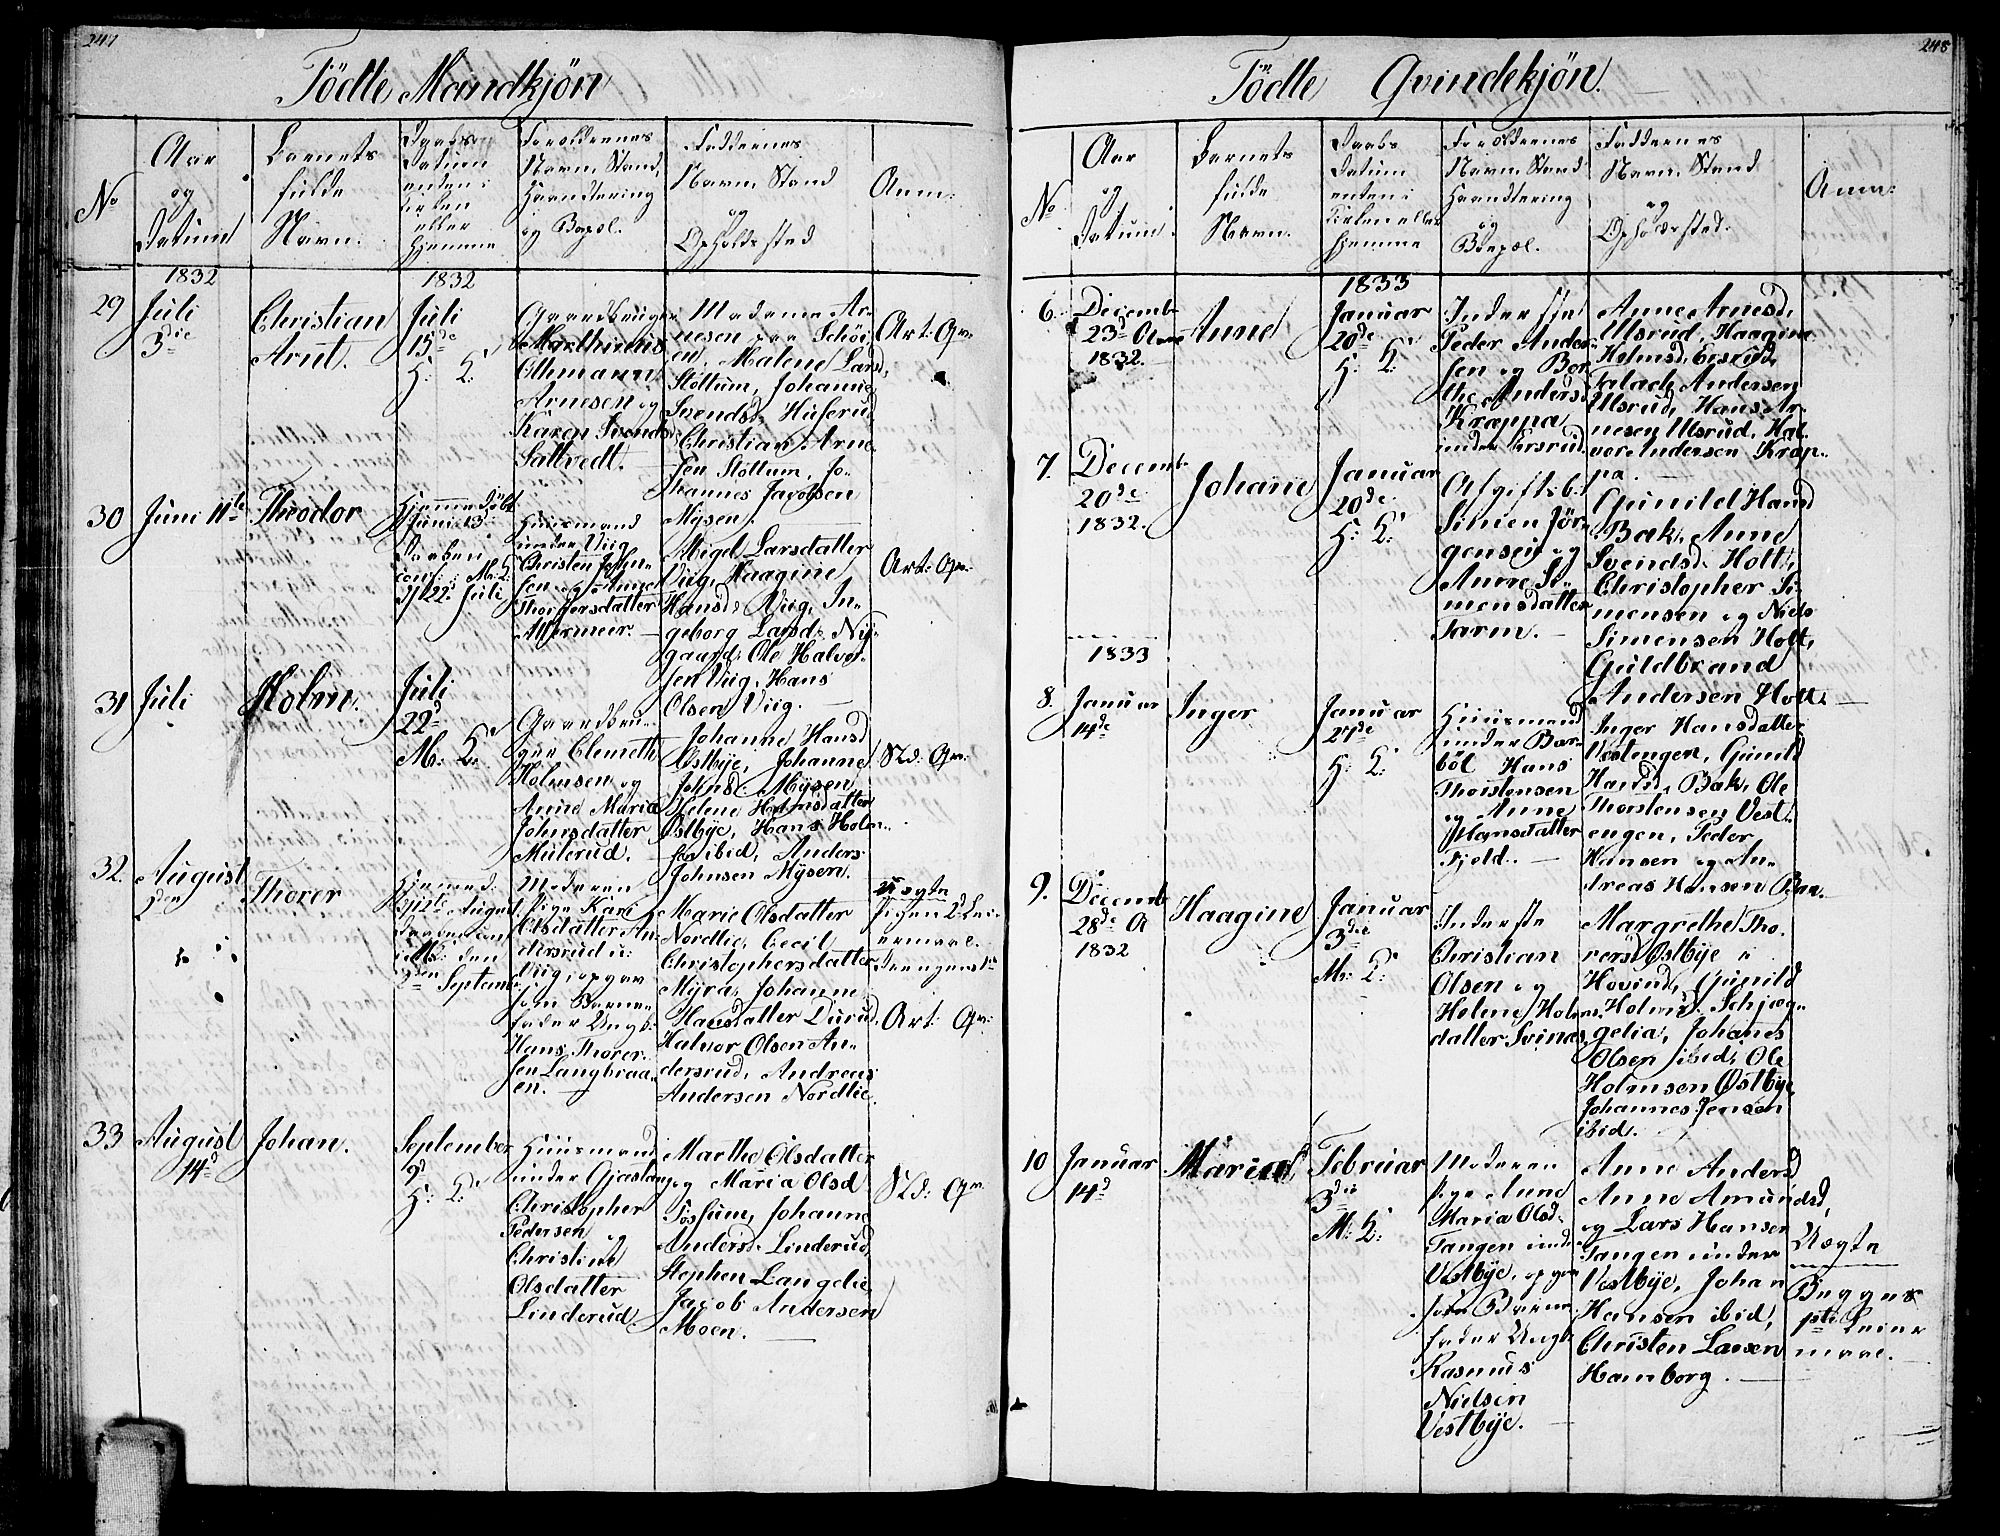 247
Födte Mandkjön
No
Aar
og
Datum
Barnets
fulde
Navn.
Daabs
Datum
enten i
Kirken
eller
hjemme
Forældrenes
Navn, Stand,
Haandtering
og Bopæl.
Faddernes
Navn, Stand
og
Opholdssted
Anm:
1832
1832
29
Juli
3die
Christian
Arnt.
Juli
15de
H: K:
Gaardbruger
Marthinus
Othmann
Arnesen og
Karen Svends
Sattvedt.
Madame Ar-
nesen paa Schöi
en, Malene Larsd,
Stottum, Johanne
Svendsd. Huserud
Christian Arne
sen Stottum, Jo-
hannes Jacobsen
Mysen.
Art: Qv:
30
Juni 11te
Theodor
Hjemmedöbt
Juni 13
Daaben
conf: i M: K:
22 Juli
Huusmand
under Viig
Christen John-
sen og Ane
Thorgersdatter
Attermeer.
Migel Larsdatter
Viig, Haagine
Hansd: Viig, In-
geborg Larsd: Ny-
gaard, Ole Halvor-
sen Viig, Hans
Olsen Viig.
Art: Qv:
31
Juli
Holm.
Juli
22d
M: K:
Gaardbru-
ger Clemeth
Holmsen og
Anne Maria
Johnsdatter
Mulerud.
Johanne Hansd
Østbye, Johanne
Johnsd: Mysen,
Helene Holmsdatter
Østbye, Hans Holm-
sen ibid, Anders
Johnsen Mysen.
Sld: Qv:
32.
August
den
Thorer
Hjemmed:
August
Daaben conf
i M: K: den
September
Moderen
Pige Kari
Olsdatter An-
dersrud u:
Viig, opgav
som Barne-
fader Ungk:
Hans Thorer-
sen Langbraa-
en.
Marie Olsdatter
Nordlie, Cecil
Christophersdatter
Myra, Johanne
Hansdatter Durud,
Halvor Olsen An-
dersrud, Andreas
Andersen Nordlie.
Uægte
Pigens Lei-
ermaal.
Drengens
Art: Qv:
33
August
14d
Johan.
September
9d
H: K:
Huusmand
under Gjastang
Christopher
Pedersen
og
Christine
Olsdatter
Linderud.
Marthe Olsdatter
og Maria Olsd
Fossum, Johanne
Andersd: Linderud,
Stephen Langelie,
Jacob Andersen
Moen.
Sld: Qv:
248
Födte Qvindekjön.
No
Aar
og
Datum.
Barnets
fulde
Navn.
Daabs
Datum
enten i
Kirken eller
hjemme
Forældrenes
Navn, Stand
Haandtering
og
Bopæl.
Faddernes
Navn, Stand
og
Opholdssted.
Anm:
1833
6.
Decemb
23d
1832.
Anne
Januar
20de
H: K:
Inderste
Peder Ander
sen og Bor
the Andersd
Krappa
under Ersrud
Anne Arnesd,
Ulsrud, Haagine
Holmsd, Ersrud,
Andersen
Ulsrud, Hans Ar-
nesen Ulsrud, Hal-
vor Andersen Krap-
pa
7.
Decemb
20de
1832.
Johanne
Januar
20de
H: K:
Afgiftsb:
Simen Jör-
gensen og
Anne Si-
mensdatter
Gunild Hansd
Bak, Anne
Svendsd. Holt,
Christopher Si-
mensen og Niels
Simensen Holt,
Guldbrand
Andersen Holt.
1833
8.
Januar
14de
Inger
Januar
27de
H: K:
Huusmand
under Bær-
böl Hans
Thorstensen
og Anne
Hansdatter
Fjeld.
Inger Hansdatter
Vestengen, Gunild
Hansd, Bak, Ole
Thorstensen Vest-
engen, Peder
Hansen og An-
dreas Hansen Bær-
9.
Decemb
28de
1832
Haagine
Januar
3die
M: K:
Inderste
Christian
Olsen og
Helene Holms-
datter Svinaas
Margrethe Tho-
rersd Østbye i
Hovind, Gunild
Holmsd. Schjæg-
gelia, Johanes
Olsen ibid, Ole
Holmsen Østbye,
Johannes Jensen
ibid.
10
Januar
14d
Maria
Februar
3die
M: K:
Moderen
Pige Anne
Maria Olsd
Tangen under
Vestbye, opgav
som Barne
fader Ungk:
Rasmus
Nielsen
Vestbye.
Anne Andersd
Anne Amundsd,
og Lars Hansen
Tangen under
Vestbye, Johan
Hansen ibid,
Christen Larsen
Hamborg.
Uægte
Begges
1ste Leier
maal.